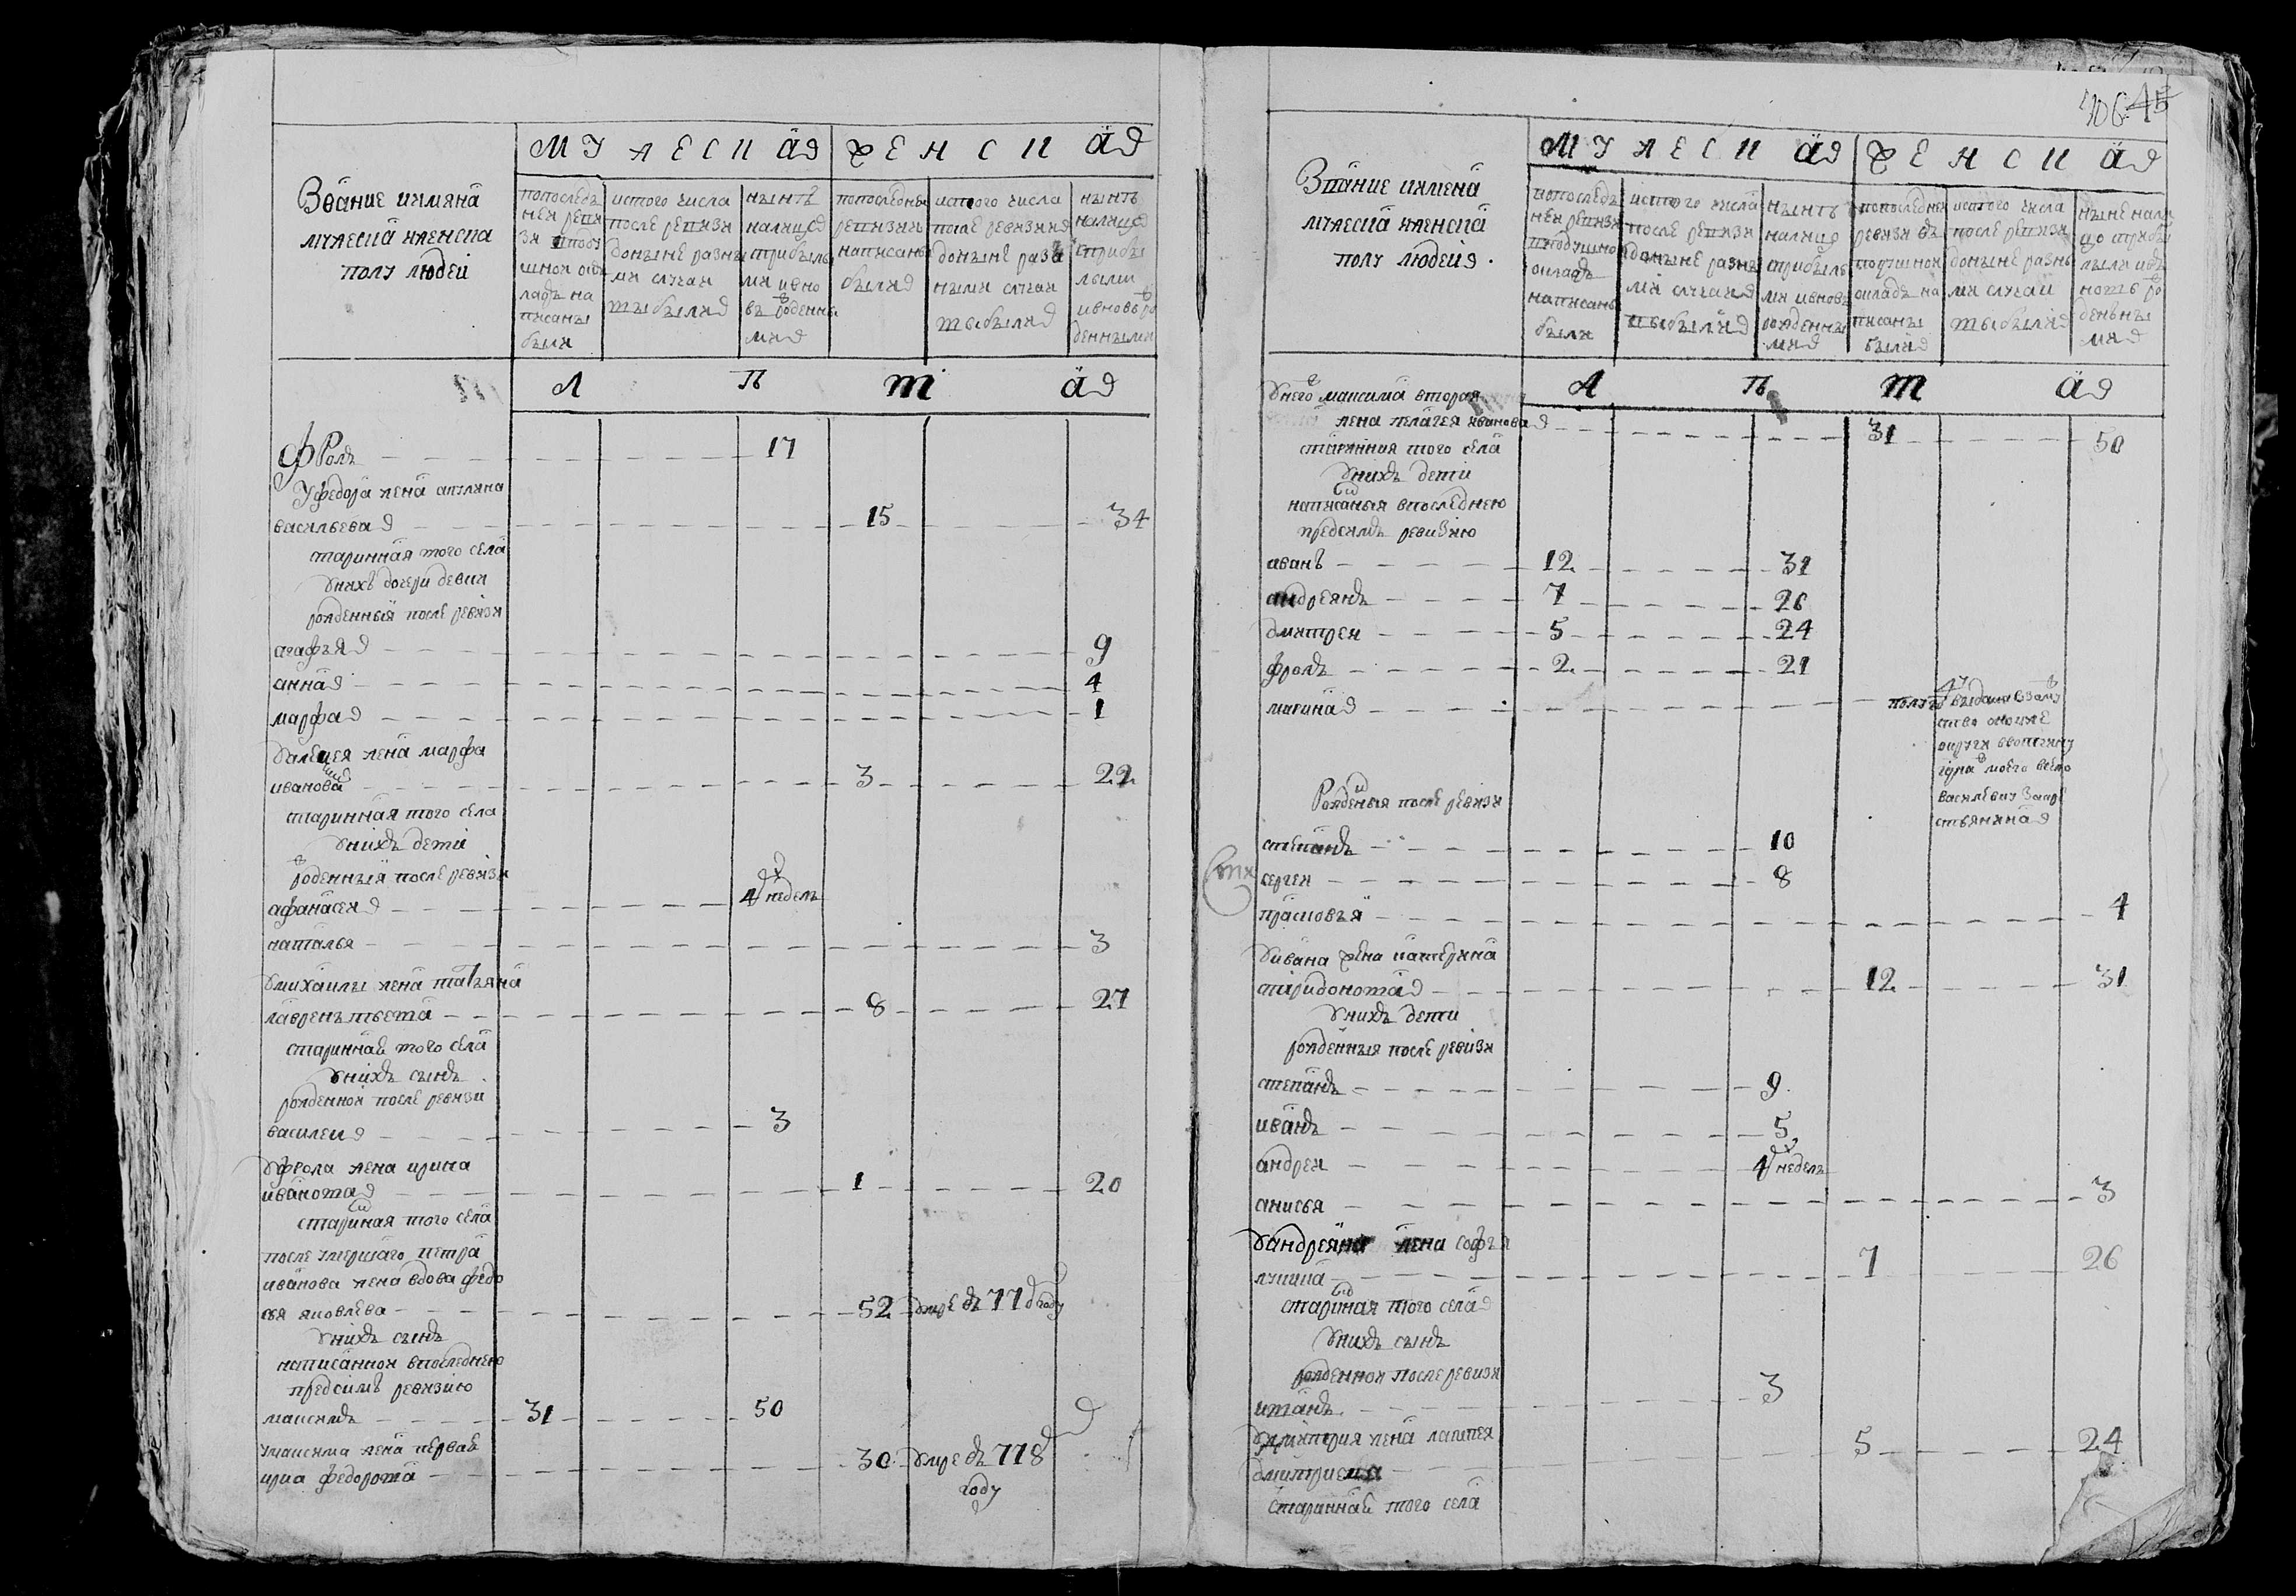 Звание имяна
мужеска и женска
полу людей
Мужеская
Женская
попоследъ
ней реви
зи вподу
шной окъ
ладъ на
писаны
были
истого числа
после ревизи
доныне разны
ми случаи
выбыли
ныне
налицо
прибылы
ми ивно
въ роденны
ми
попоследне
ревизии
написаны
были
истого числа
после ревизии
доныне раз
ными случаи
выбыли
ныне
налицо
сприбы
лыми
ивновь ро
денными
Лета
Фролъ 17
У федора жена аксиляна
васильева 15 34
старинная того села
Уних дочери девки
рожденныя после ревизи
агафья 9
анна 4
марфа 1
Уалексея жена марфа
иванова 3 22
старинная того села
Унихъ дети
роденныя после ревизи
афанасей 4 недель
наталья 3
Умихаилы жена татьяна
лаврентьева 8 27
старинная того села
Унихъ сынъ
рожденной после ревизи
василей 3
Уфрола жена ирина
иванова 1 20
стариная того села
после умершаго петра
иванова жена вдова федо
сья яковлева 52 умре въ 77 году
Унихъ сынъ
написанной впоследнею
предсимъ ревизию
максимъ 31 50
Умаксима жена первая
ирина федорова 30 умре въ 778
году
706 45
Звание имена
мужеска и женска
полу людей
Мужеская
Женская
попоследъ
ней ревизи
вподушной
окладъ
написаны
были
истого числа
после ревизи
доныне разны
ми случаи
выбыли
ныне
налицо
сприбылы
ми ивновь
рожденны
ми
попоследней
ревизи въ
подушной
окладъ на
писаны
были
истого числа
после ревизи
доныне разны
ми случаи
выбыли
ныне нали
цо прибы
лыми ивъ
новь ро
деньны
ми
Лета
Унего максима вторая
жена пелагея иванова 31 50
старинная того села
Унихъ дети
написаныя впоследнею
предсимъ ревизию
иванъ 12 31
андреянъ 7 26
дмитрей 5 24
фролъ 2 21
марина выдана взаму
ство оной же
округи
васильевну закре
стьянина
Рожденыя после ревизи
степанъ 10
сергей 8
прасковья 4
Уивана жена катерина
спиридонова 12 31
Унихъ дети
рожденныя после ревизи
степанъ 9
иванъ 5
андрей 4 недель
анисья 3
Уандреяна жена софья
лукина 7 26
стариная того села
Унихъ сынъ
рожденной после ревизи
иванъ 3
Удмитрия жена
дмитриева 5 24
старинная того села